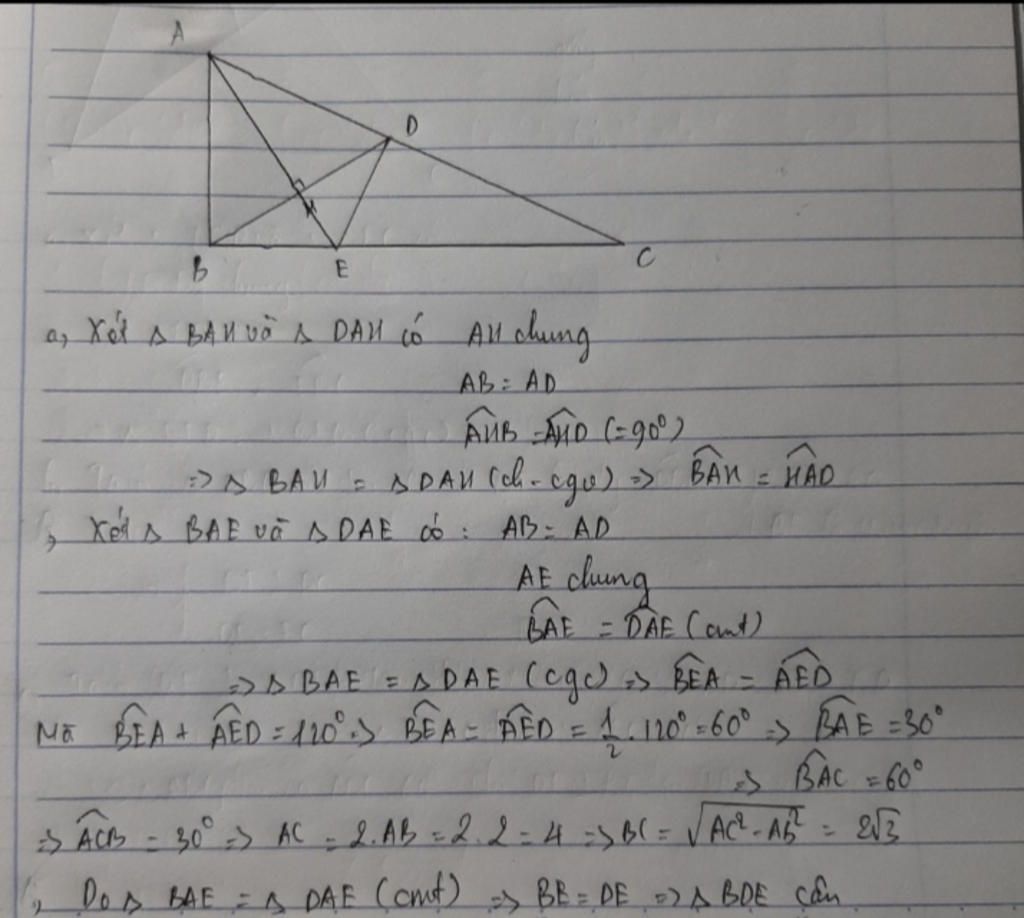 A
D
H
B
E
C
a, Xét Δ BAH và Δ DAH có AH chung
AB = AD
\widehat{AHB} = \widehat{AHD} (=90°)
=> Δ BAH = Δ DAH (ch-cgv) => \widehat{BAH} = \widehat{HAD}
, Xét Δ BAE và Δ DAE có : AB = AD
AE chung
\widehat{BAE} = \widehat{DAE} (cmt)
=> Δ BAE = Δ DAE (cgc) => \widehat{BEA} = \widehat{AED}
Mà \widehat{BEA} + \widehat{AED} = 120° => \widehat{BEA} = \widehat{AED} = \frac{1}{2} . 120° = 60° => \widehat{BAE} = 30°
=> \widehat{BAC} = 60°
=> \widehat{ACB} = 30° => AC = 2.AB = 2.2 = 4 => BC = \sqrt{AC² - AB²} = 2√3
, Do Δ BAE = Δ DAE (cmt) => BE = DE => Δ BDE cân